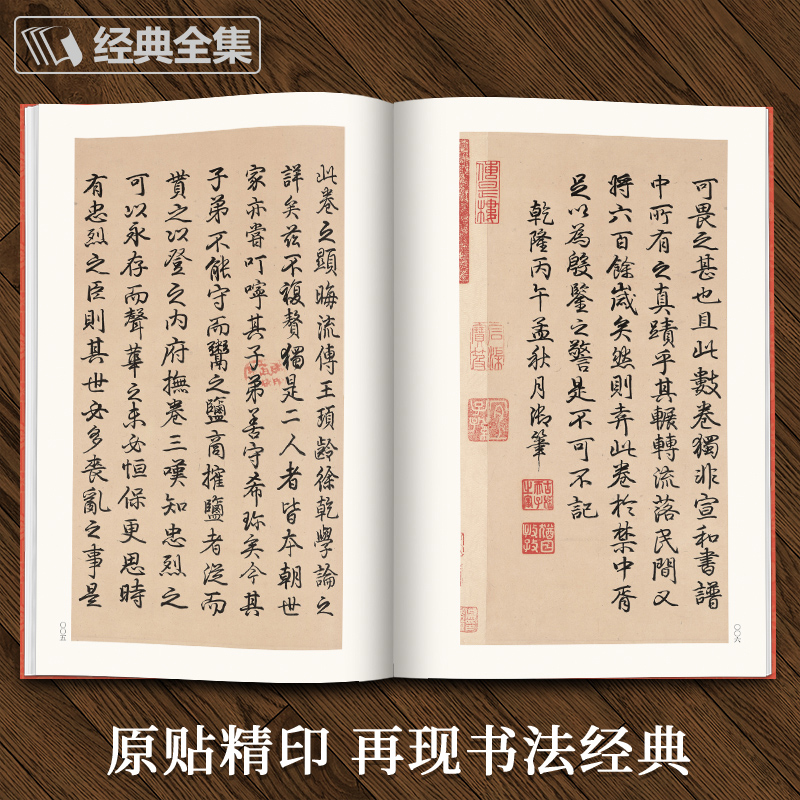 经典全集
此卷之顯晦流傳王頊齡徐乾學論之
詳矣茲不複贅獨是二人者皆本朝世
家亦嘗叮嚀其子弟善守希珎矣今其
子弟不能守而鬻之鹽商搉鹽者從而
貰之以登之内府撫卷三嘆知忠烈之
可以永存而聲華之未必恒保更思時
有忠烈之臣則其世必多喪亂之事是
〇〇五
可畏之甚也且此數卷獨非宣和書譜
中所有之真蹟乎其輾轉流落民間又
將六百餘歲矣然則弆此卷於禁中胥
足以為殷鑒之警是不可不記
乾隆丙午孟秋月御筆
古稀天子之寶
猶日孜孜
傳是樓
〇〇六
原贴精印 再现书法经典